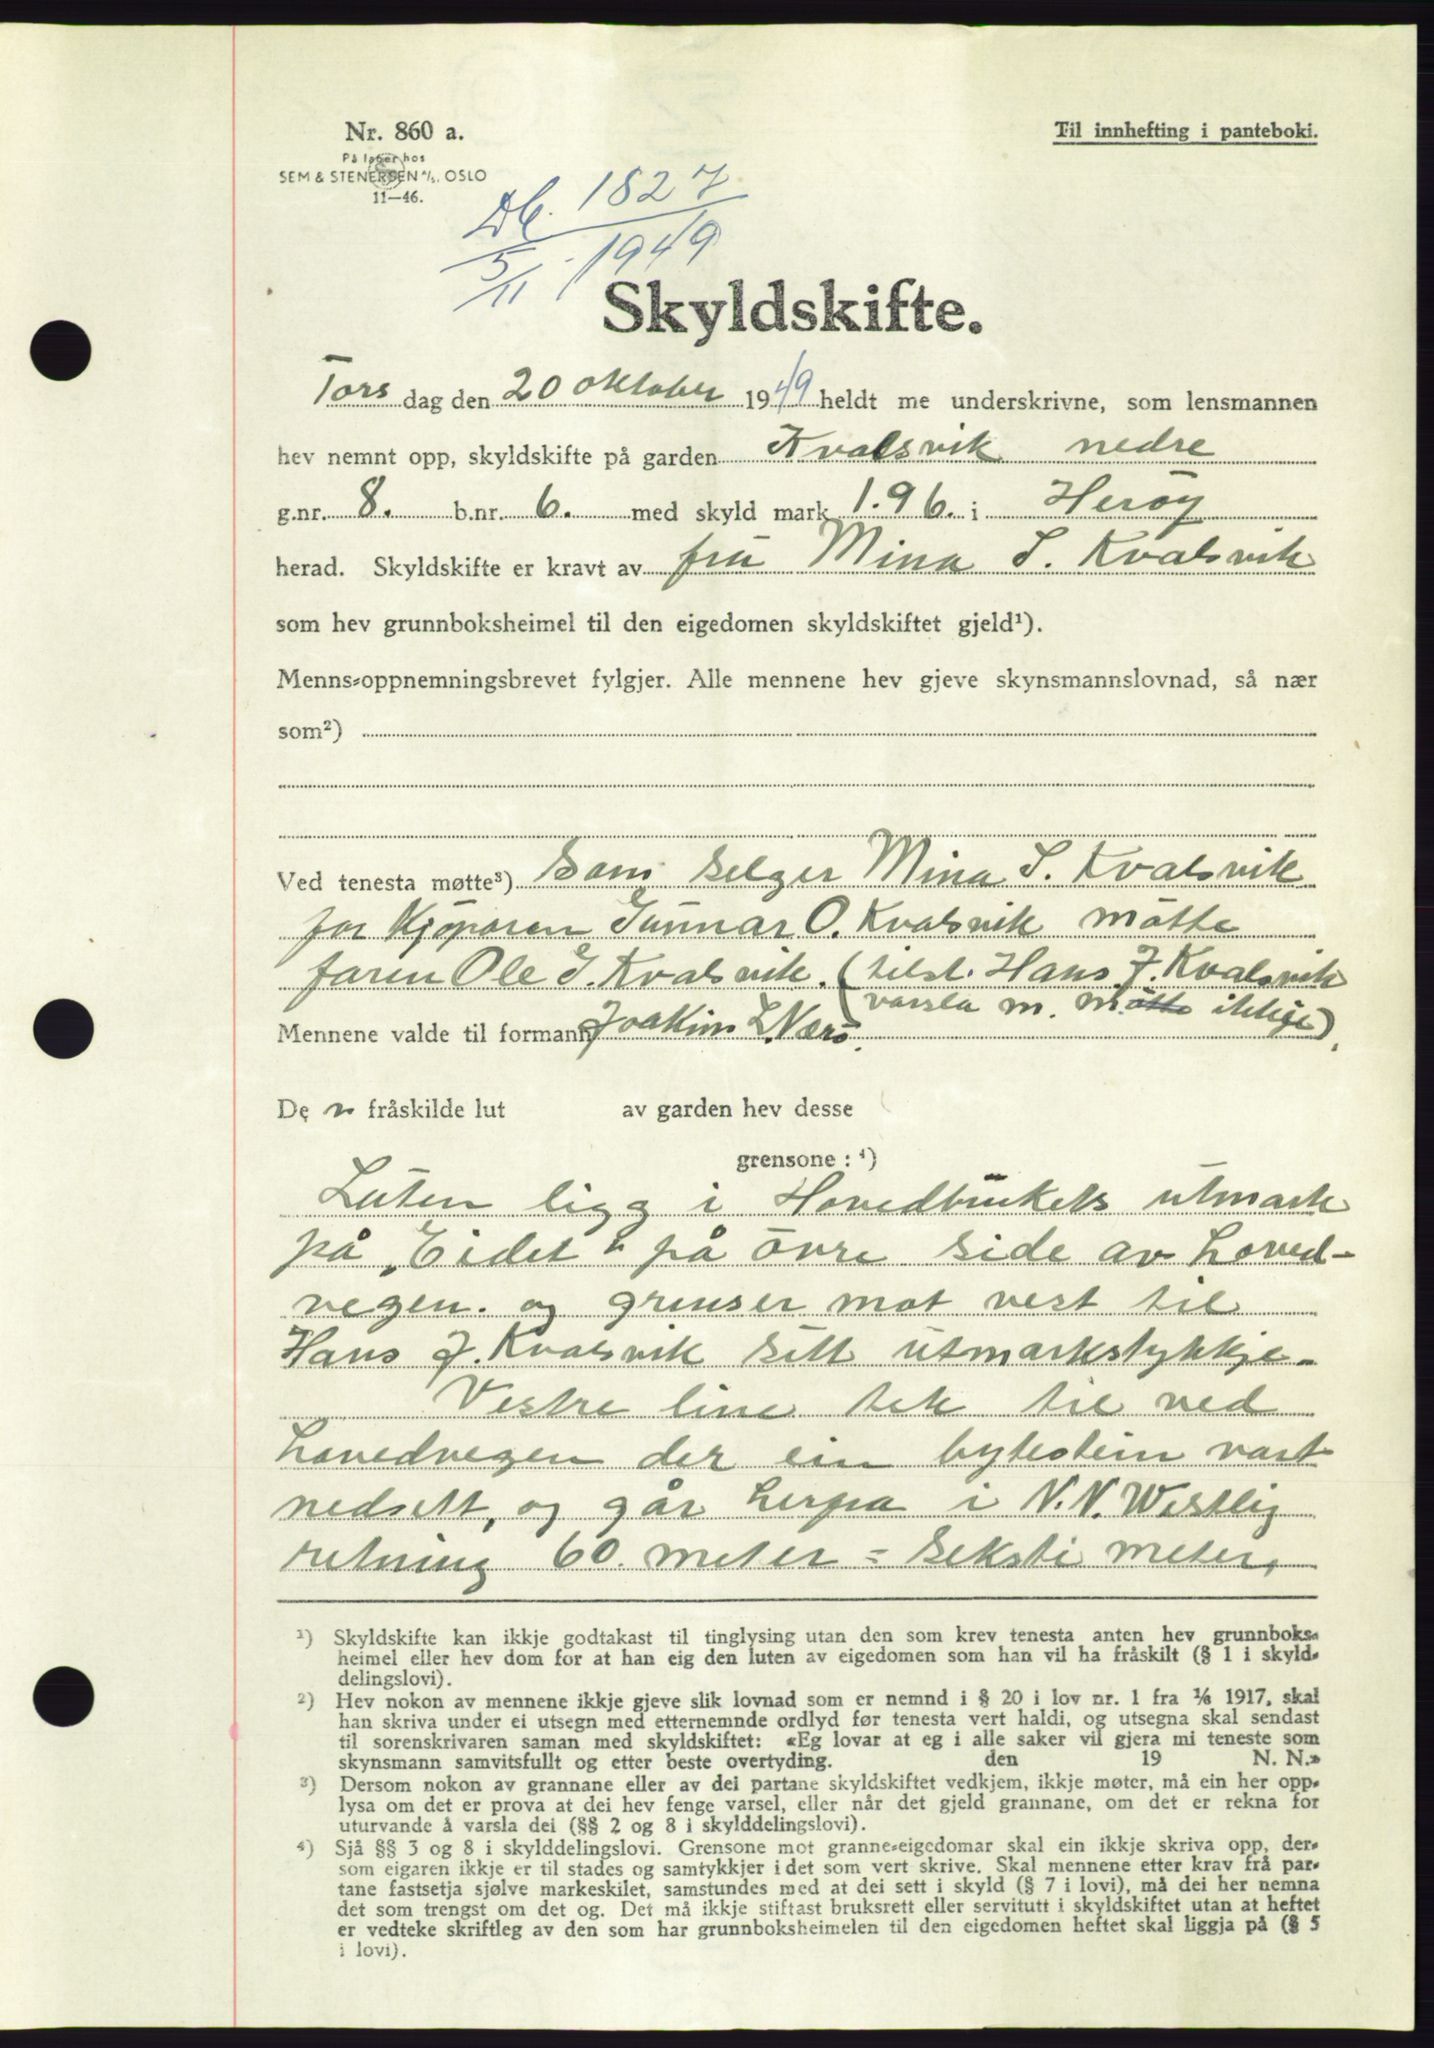 Nr. 860 a.
På lager hos
SEM & STENERSEN A/S. OSLO
11—46.
Til innhefting i panteboki.
Db. 1827
5/11 - 1949
Skyldskifte.
Torsdag den 20 oktober 1949 heldt me underskrivne, som lensmannen
hev nemnt opp, skyldskifte på garden Kvalsvik nedre
g.nr. 8. b.nr. 6. med skyld mark 1.96. i Herøy
herad. Skyldskifte er kravt av fru Mina S. Kvalsvik
som hev grunnboksheimel til den eigedomen skyldskiftet gjeld¹).
Menns-oppnemningsbrevet fylgjer. Alle mennene hev gjeve skynsmannslovnad, så nær
som²)
Ved tenesta møtte³) Som Selger Mina S. Kvalsvik
for Kjöparen Gunnar O. Kvalsvik møtte
faren Ole G. Kvalsvik. (tilst. Hans J. Kvalsvik
(varsla m. møtte ikkje)
Mennene valde til formann Joakim L. Nærö.
De n fråskilde lut av garden hev desse
grensone: ⁴)
Luten ligg i Hovedbrukets utmark
på "Eidet" på övre side av hoved-
vegen. og grenser mot vest til
Hans J. Kvalsvik sitt utmarkstykkje.
Vestre line tek til ved
hovedvegen der ein bytestein vart
nedsett, og går herfra i N.N. Westlig
retning 60. meter = seksti meter,
¹) Skyldskifte kan ikkje godtakast til tinglysing utan den som krev tenesta anten hev grunnboks-
heimel eller hev dom for at han eig den luten av eigedomen som han vil ha fråskilt (§ 1 i skyld-
delingslovi).
²) Hev nokon av mennene ikkje gjeve slik lovnad som er nemnd i § 20 i lov nr. 1 fra 1/6 1917, skal
han skriva under ei utsegn med etternemnde ordlyd før tenesta vert haldi, og utsegna skal sendast
til sorenskrivaren saman med skyldskiftet: «Eg lovar at eg i alle saker vil gjera mi teneste som
skynsmann samvitsfullt og etter beste overtyding. den 19 N. N.»
³) Dersom nokon av grannane eller av dei partane skyldskiftet vedkjem, ikkje møter, må ein her opp-
lysa om det er prova at dei hev fenge varsel, eller når det gjeld grannane, om det er rekna for
uturvande å varsla dei (§§ 2 og 8 i skylddelingslovi).
⁴) Sjå §§ 3 og 8 i skylddelingslovi. Grensone mot granne-eigedomar skal ein ikkje skriva opp, der-
som eigaren ikkje er til stades og samtykkjer i det som vert skrive. Skal mennene etter krav frå par-
tane fastsetja sjølve markeskilet, samstundes med at dei sett i skyld (§ 7 i lovi), må dei her nemna
det som trengst om det og. Det må ikkje stiftast bruksrett eller servitutt i skyldskiftet utan at heftet
er vedteke skriftleg av den som har grunnboksheimelen til den eigedomen heftet skal liggja på (§ 5
i lovi).